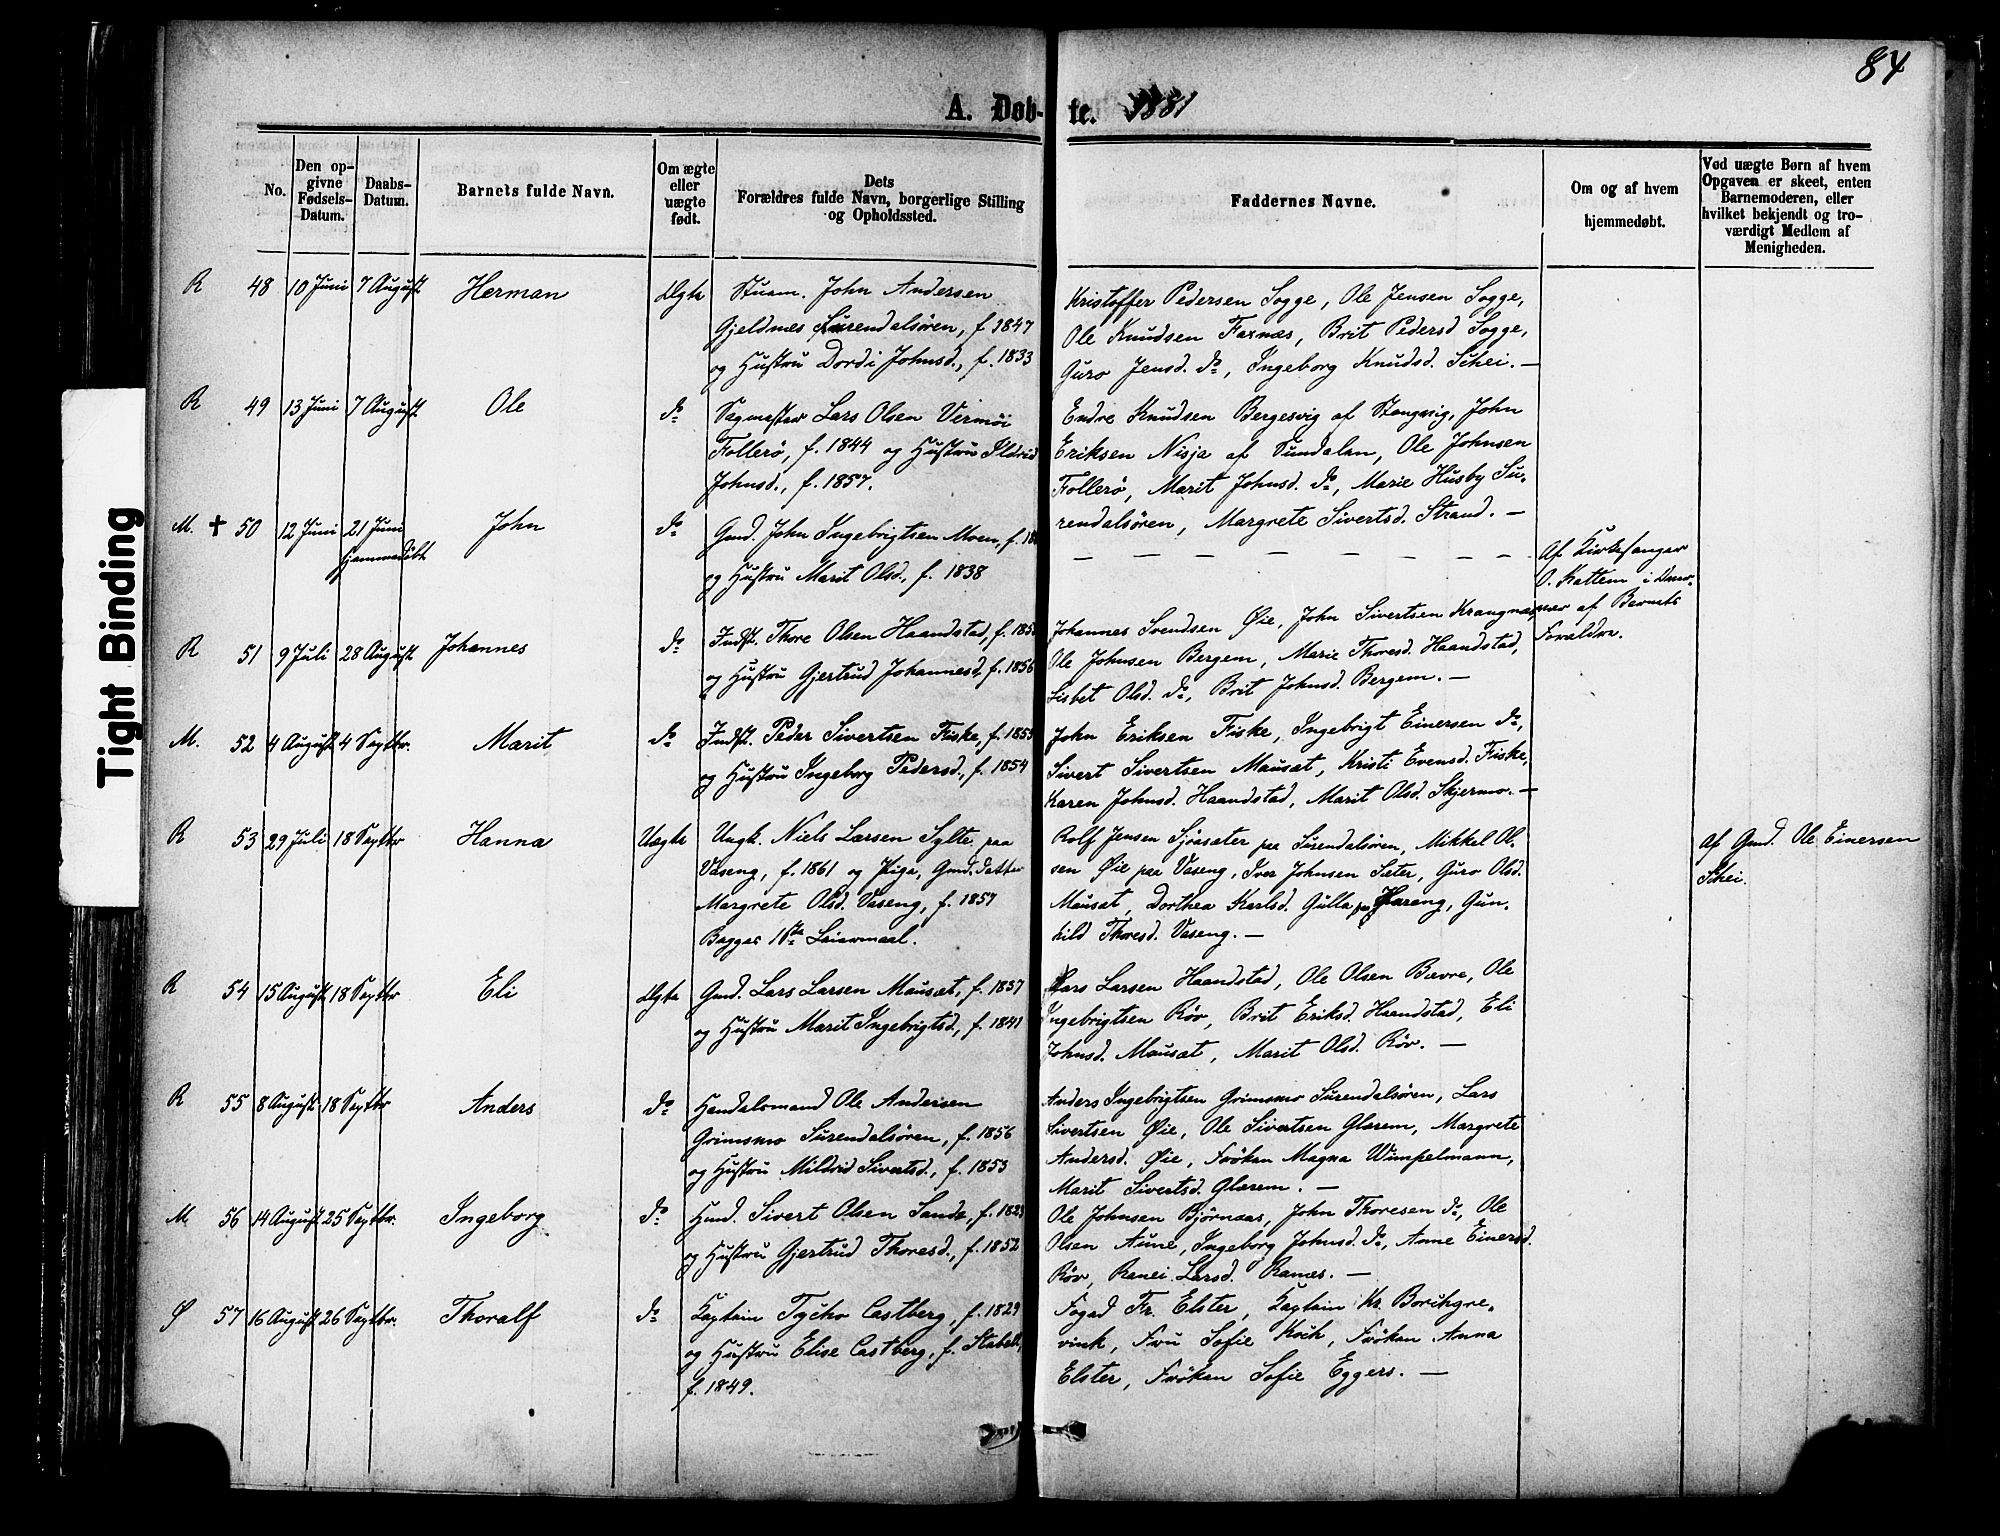 84
A. Døb- te. 1881
No.
Den op-
givne
Fødsels-
Datum.
Daabs-
Datum.
Barnets fulde Navn.
Om ægte
eller
uægte
født.
Dets
Forældres fulde Navn, borgerlige Stilling
og Opholdssted.
Faddernes Navne.
Om og af hvem
hjemmedøbt.
Ved uægte Børn af hvem
Opgaven er skeet, enten
Barnemoderen, eller
hvilket bekjendt og tro-
værdigt Medlem af
Menigheden.
R 48 10 Juni 7 August Herman Ægte
Stuam. John Andersen
Gjeldnes Surendalsören, f. 1847
og Hustru Dordi Johnsd., f. 1833
Kristoffer Pedersen Sogge, Ole Jensen Sogge,
Ole Knudsen Farnæs, Brit Pedersd Sogge,
Guro Jensd. do, Ingeborg Knudsd. Schei. —
R 49 13 Juni 7 August Ole do
Sagmester Lars Olsen Vermöi
Follerö, f. 1844 og Hustru Ildrid
Johnsd., f. 1857.
Endre Knudsen Bergesvig af Stangvig, John
Eriksen Nisja af Sundalen, Ole Johnsen
Follerö, Marit Johnsd. do, Marie Husby Su-
rendalsören, Margrete Sivertsd. Strand. —
M. + 50 12 Juni 21 Juni John do
hjemmedöbt
Gmd. John Ingebrigtsen Moen, f. 18
og Hustru Marit Olsd., f. 1838
— — — — — — — — —
Af Kirkesanger
O. Kattem i Nær-
vær af Barnets
Forældre.
R 51 9 Juli 28 August Johannes do
Indst. Thore Olsen Haandstad, f. 185
og Hustru Gjertrud Johannesd, f. 1856
Johannes Svendsen Øie, John Sivertsen Krangnæs,
Ole Johnsen Bergem, Marie Thoresd. Haandstad,
Lisbet Olsd. do, Brit Johnsd. Bergem. —
M. 52 4 August 4 Septbr. Marit do
Indst. Peder Sivertsen Fiske, f. 1853
og Hustru Ingeborg Pedersd., f. 1854
John Eriksen Fiske, Ingebrigt Einersen do,
Sivert Sivertsen Mausæt, Kristi Evensd. Fiske,
Karen Johnsd. Haandstad, Marit Olsd. Skjermo. —
R 53 29 Juli 18 Septbr Hanna Uægte
Ungk. Niels Larsen Sylte paa
Vaseng, f. 1861 og Pige, Gmd. Datter
Margrete Olsd. Vaseng, f. 1857
Begges 1ste Leiermaal.
Rolf Jensen Sjöasæter paa Surendalsören, Mikkel Ol-
sen Øie paa Vaseng, Iver Johnsen Sæter, Guro Olsd.
Mausæt, Dorthea Karlsd. Gulla paa Harang, Gun-
hild Thoresd. Vaseng. —
Af Gmd. Ole Einersen
Schei.
R 54 15 August 18 Septbr Eli Ægte
Gmd. Lars Larsen Mausæt, f. 1837
og Hustru Marit Ingebrigtsd., f. 1841
Lars Larsen Haandstad, Ole Olsen Bævre, Ole
Ingebrigtsen Röv, Brit Eriksd. Haandstad, Eli
Johnsd. Mausæt, Marit Olsd. Röv. —
R 55 8 August 18 Septbr Anders do
Handelsmand Ole Andersen
Grimsmo Surendalsören, f. 1856
og Hustru Mildrid Sivertsd., f. 1853
Anders Ingebrigtsen Grimsmo Surendalsören, Lars
Sivertsen Øie, Ole Sivertsen Glærem, Margrete
Andersd. Øie, Fröken Magna Wimpelmann,
Marit Sivertsd. Glærem. —
M. 56 14 August 25 Septbr. Ingeborg do
Gmd. Sivert Olsen Sande, f. 1823
og Hustru Gjertrud Thoresd., f. 1852
Ole Johnsen Björnaas, John Thoresen do, Ole
Olsen Aune, Ingeborg Johnsd. do, Anne Einersd.
Röv, Ranei Larsd. Ranes. —
Ø 57 16 August 26 Septbr. Thoralf do
Kaptein Tycho Castberg, f. 1829
og Hustru Elise Castberg, f. Stabell,
f. 1849.
Foged Fr. Elster, Kaptein Kr. Borchgre-
vink, Fru Sofie Koch, Fröken Anna
Elster, Fröken Sofie Eggers. —
Tight Binding